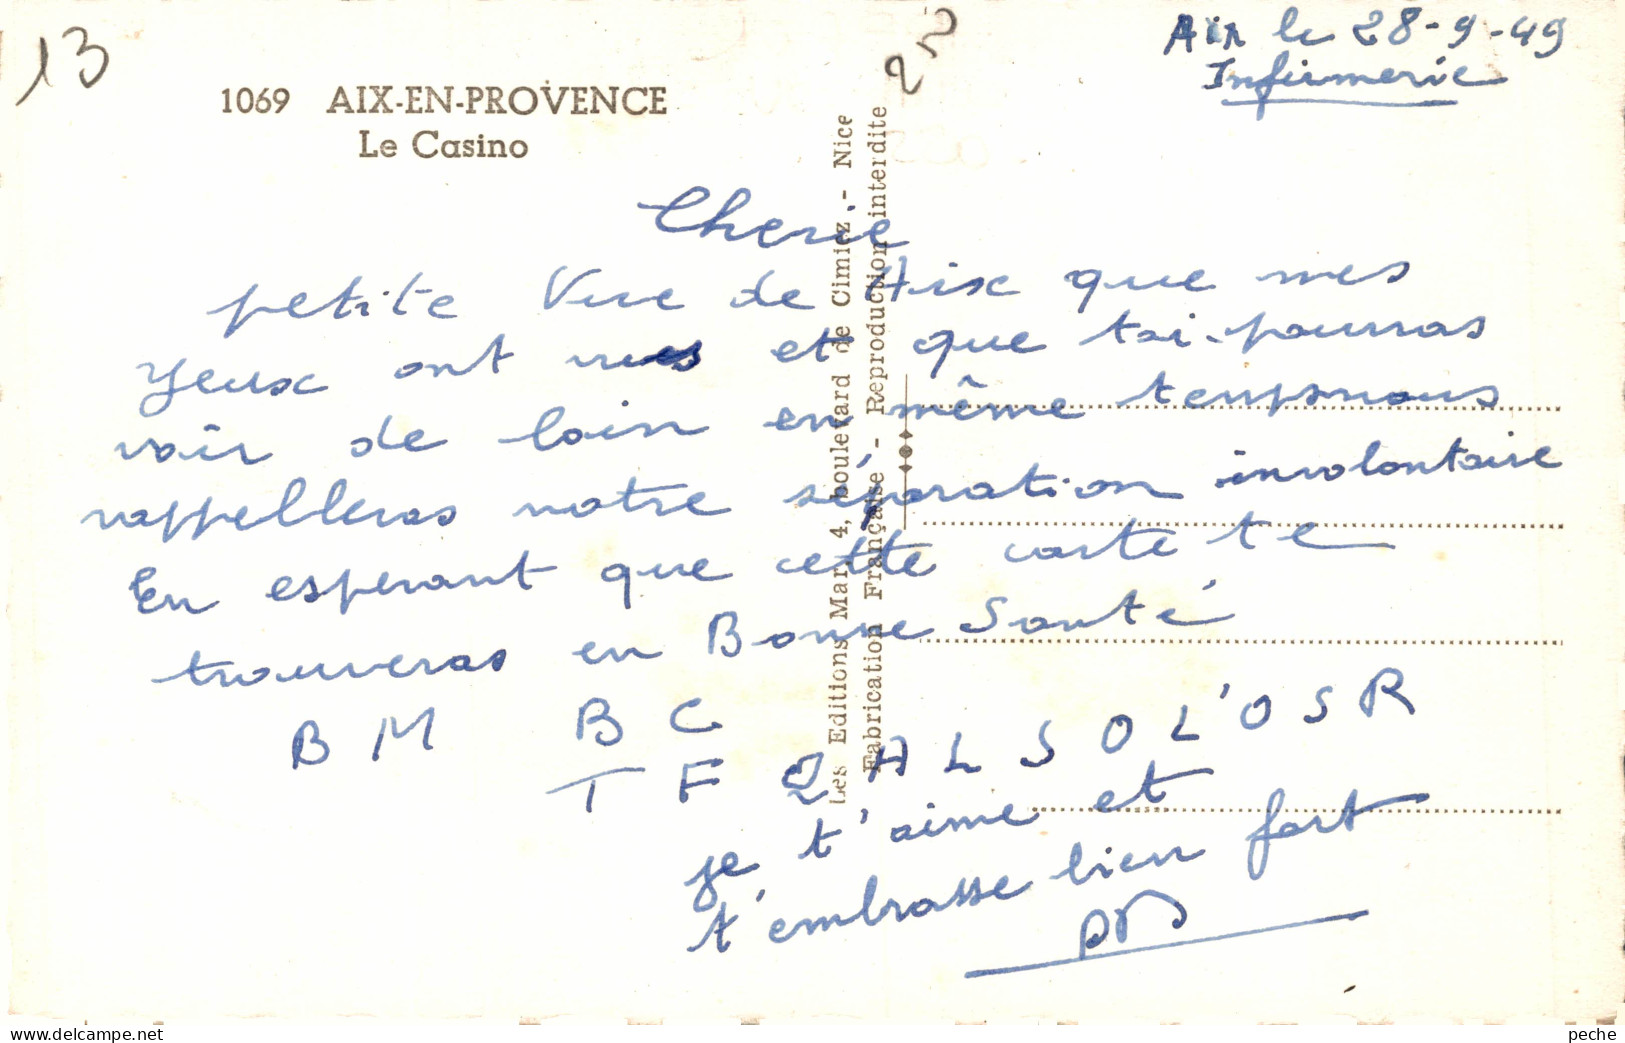 13
22
Aix le 28-9-49
Infirmerie
1069 AIX-EN-PROVENCE
Le Casino
Les Editions Mar, 4, boulevard de Cimiez - Nice
Fabrication Française - Reproduction interdite
Cherie
petite Vue de Aix que mes
yeux ont vues et que toi pourras
voir de loin en même temps nous
rappelleras notre séparation involontaire
En esperant que cette carte te
trouveras en Bonne Santé
B M B C
T F 2 A L S O L'O S R
je t'aime et
t'embrasse bien fort
www.delcampe.net
peche